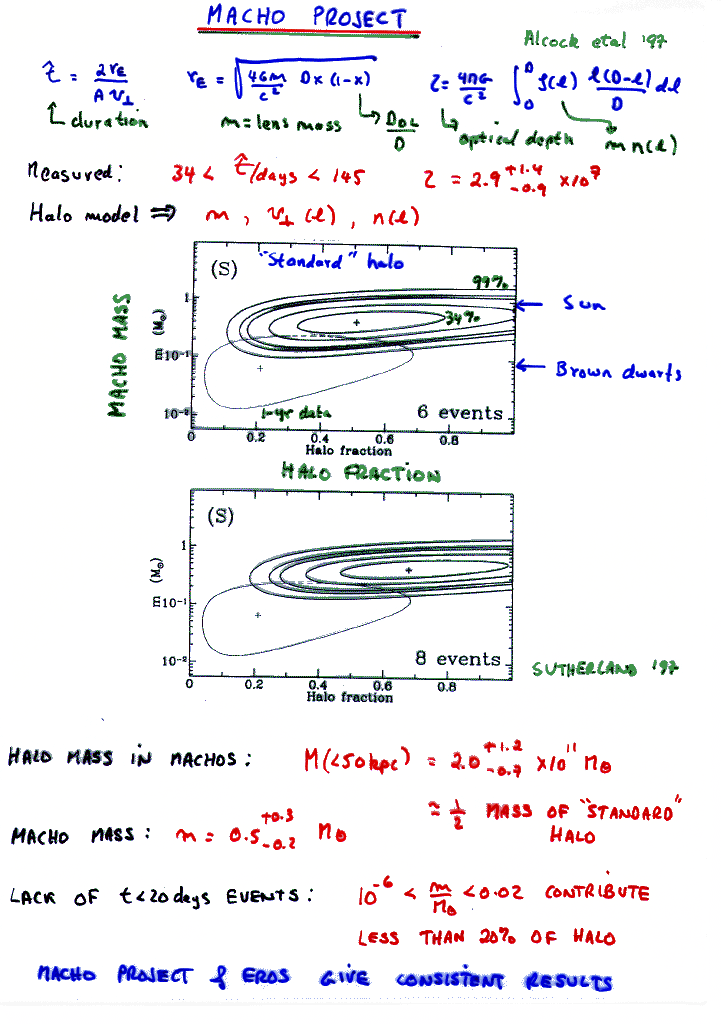 MACHO PROJECT
Alcock et al '97
t̂ = 2rE / A v⊥   rE = √(4Gm/c² Dx(1-x))   τ = 4πG/c² ∫₀ᴰ ρ(l) l(D-l)/D dl
duration   m = lens mass   DOL/D   optical depth   m n(l)
Measured: 34 < t̂/days < 145   τ = 2.9 +1.4 -0.9 ×10⁷
Halo model ⇒ m, v⊥(l), n(l)
(S) "Standard" halo
99%
34%
Sun
Brown dwarfs
MACHO MASS
(M⊙)
1
E10⁻¹
10⁻²
1-yr data
6 events
0 0.2 0.4 0.6 0.8
Halo fraction
HALO FRACTION
(S)
(M⊙)
1
E10⁻¹
10⁻²
8 events
SUTHERLAND '97
0 0.2 0.4 0.6 0.8
Halo fraction
HALO MASS IN MACHOS: M(<50kpc) = 2.0 +1.2 -0.7 ×10¹¹ M⊙
≃ 1/2 MASS OF "STANDARD"
HALO
MACHO MASS: m = 0.5 +0.3 -0.2 M⊙
LACK OF t<20days EVENTS: 10⁻⁶ < m/M⊙ < 0.02 CONTRIBUTE
LESS THAN 20% OF HALO
MACHO PROJECT & EROS GIVE CONSISTENT RESULTS